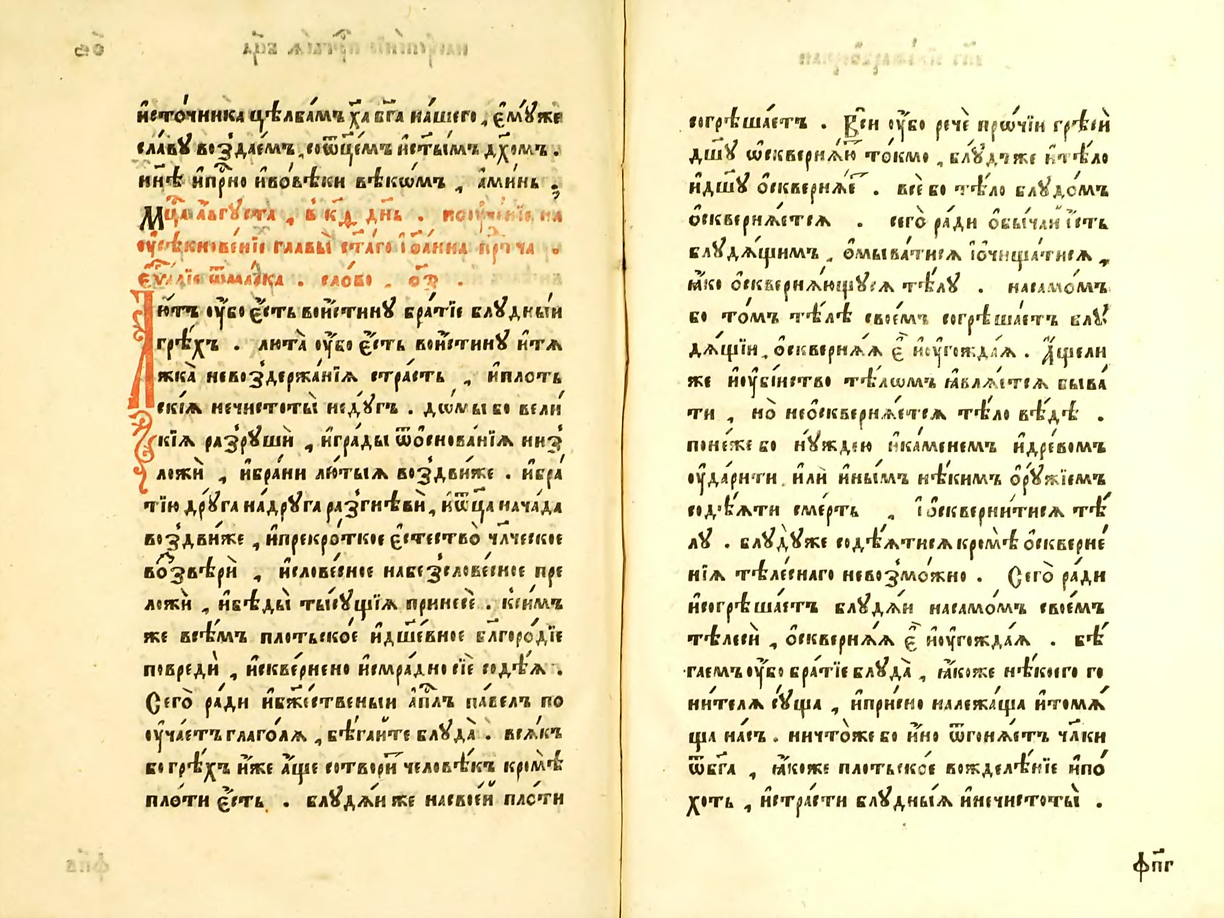 и҆сто́чника цѣлба́мъ х҃а бг҃а на́шего , є҆мꙋ́же
сла́вꙋ воздае́мъ , соѿц҃е́мъ и҆ст҃ы́мъ дх҃омъ .
инн҃ѣ и҆при́сно и҆вовѣ́ки вѣкѡ́мъ , а҆ми́нь .
Мцⷭ҇а а҆́вгꙋста , в кѳ҃ днь . поꙋче́нїе на
оу҆сѣкнове́нїе главы̀ ст҃а́го їѡ҆а́нна пртⷣча .
є҆ѵⷢ҇лїе ѿ ма́рка . сло́во .
Лю́тъ оу҆́бо є҆́сть вои́стинꙋ бра́тїе блꙋ́дный
грѣ́хъ . люта̀ оу҆́бо є҆́сть вои́стинꙋ и҆тѧ́
жка̀ невоздержа́нїѧ стра́сть , и҆пло́ть
скїѧ нечистоты̀ недꙋ́гъ . до́мы бо вели́
кїѧ разрꙋшѝ , и҆гра́ды ѿоснова́нїѧ низ
ложѝ , и҆бра́ни лю́тыѧ воздви́же . и҆бра́
тїю дрꙋ́га надрꙋ́га разгнѣ́ви , и҆ѿц҃а нача́да
воздви́же , и҆прекро́ткое є҆стество̀ члч҃еское
воꙁвѣрѝ , и҆слове́сное набезслове́сное пре
ложѝ , и҆бѣды̀ ты́сꙋщїѧ принесѐ . ксим́ъ
же всѣ́мъ пло́тьское и҆дш҃е́вное бл҃горо́дїе
повредѝ , и҆скве́рнено и҆смра́дно сїѐ содѣ́ѧ .
Сего̀ ра́ди и҆бж҃е́ственый а҆пⷭ҇лъ па́велъ по
оу҆ча́етъ глаго́лѧ , бѣ́гайте блꙋда̀ . всѧ́къ
бо грѣ́хъ и҆́же а҆́ще сотвори́т человѣ́къ кро́мѣ
пло́ти є҆́сть . блꙋдѧ́и же насвое́й пло́ти
согрѣша́етъ . Вси оу҆́бо речѐ про́чїи грѣсѝ
дш҃ꙋ ѡ҆сквернѧ́ют то́кмо , блꙋ́дже и҆тѣ́ло
и҆дш҃ꙋ ѻ҆сквернѧ́ет . всѐ бо тѣ́ло блꙋдо́мъ
ѻ҆сквернѧ́етсѧ . сего̀ ра́ди ѻ҆бы́чай є҆́сть
блꙋдѧ́щимъ , ѻ҆мыва́тисѧ їѻ҆чища́тисѧ ,
ꙗ҆́ко ѻ҆сквернѧ́ющꙋсѧ тѣ́лꙋ . насамо́мъ
бо то́мъ тѣ́лѣ свое́мъ согрѣша́етъ блꙋ
дѧ́щїи , ѻ҆сквернѧ́ѧ є҆̀ и҆оу҆гожда́ѧ . А҆́щели
же и҆оу҆бі́йство тѣлѡ́мъ ꙗ҆влѧ́етсѧ быва́
ти , но̀ неѻ҆сквернѧ́етсѧ тѣ́ло вѣ́дѣ .
поне́же бо нꙋ́ждею и҆ка́менемъ и҆дре́вомъ
оу҆да́рити , и҆лѝ и҆ны́мъ нѣ́кимъ ѻ҆рꙋ́жїемъ
содѣ́ѧти сме́рть , їѻ҆скверни́тисѧ тѣ́
лꙋ . блꙋ́дꙋже содѣ́ѧтисѧ кро́мѣ ѻ҆скверне́
нїѧ тѣле́снаго невозмо́жно . Сего̀ ра́ди
и҆согрѣша́етъ блꙋдѧ́и насамо́мъ свое́мъ
тѣлесѝ , ѻ҆сквернѧ́ѧ є҆̀ и҆оу҆гожда́ѧ . бѣ́
гаемъ оу҆́бо бра́тїе блꙋда̀ , ꙗ҆́коже нѣ́коего го
ни́телѧ сꙋ́ща , и҆при́сно належа́ща и҆томѧ́
ща на́съ . ничто́же бо и҆́но ѿгонѧ́етъ чл҃ки
ѿбг҃а , ꙗ҆́коже пло́тьское вожделѣ́нїе и҆по́
хоть , и҆стра́сти блꙋ́дныѧ и҆нечистоты̀ .
фпг